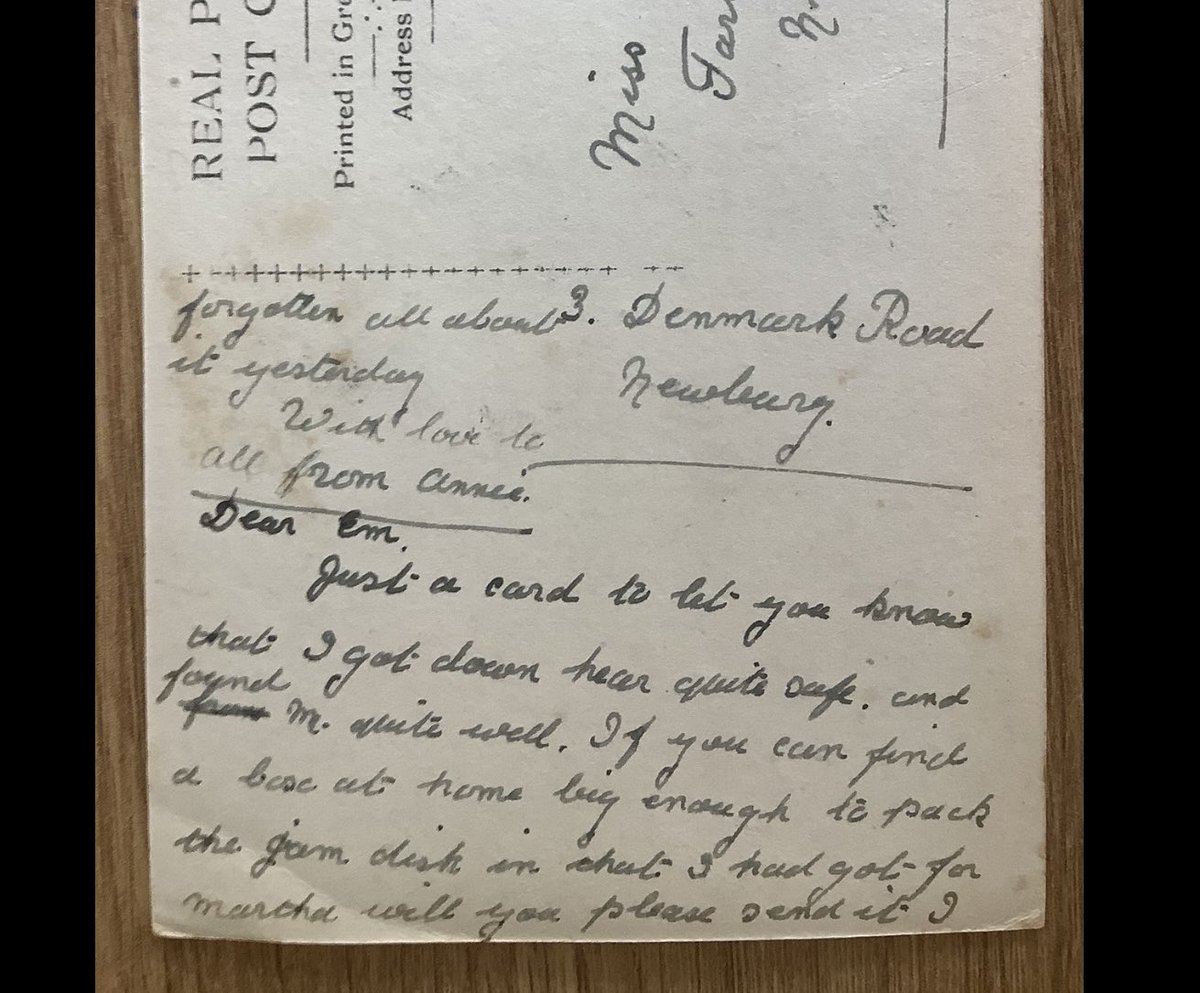 REAL P
POST C
Printed in Gre
Address
Miss
3. Denmark Road
Newbury.
Dear Em.
Just a card to let you know
that I got down hear quite safe. and
found
M. quite well. If you can find
a box at home big enough to pack
the jam dish in that I had got for
martha will you please send it I
forgotten all about
it yesterday
With love to
all from annie.